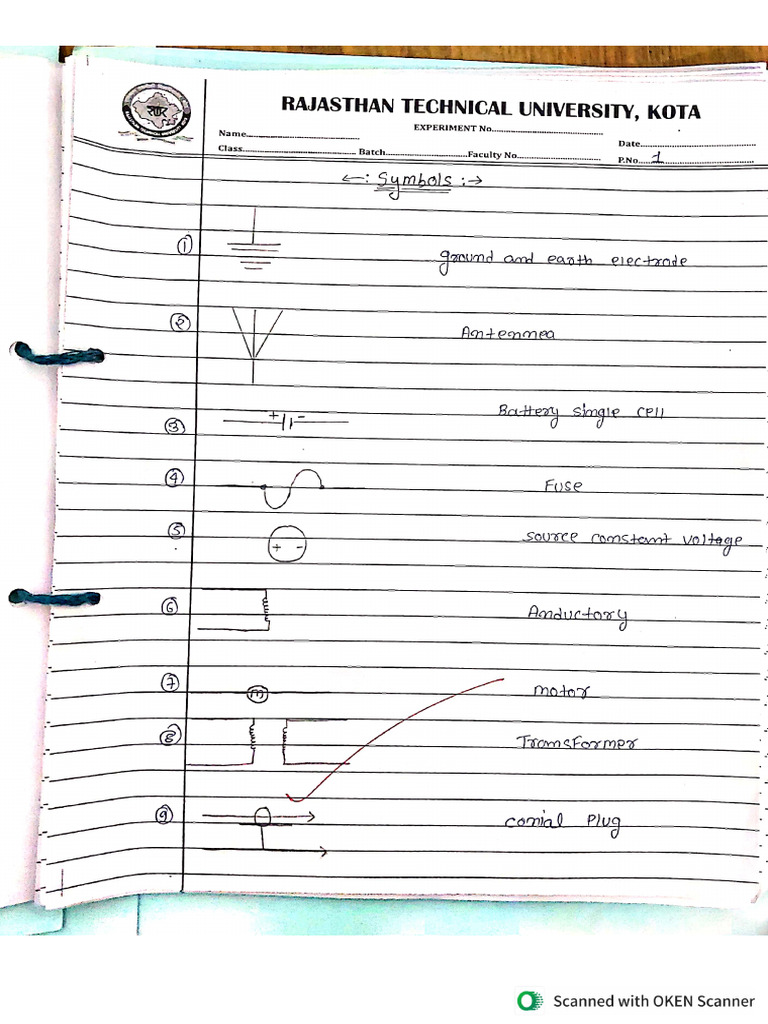 RAJASTHAN TECHNICAL UNIVERSITY, KOTA
EXPERIMENT No.
Name
Date
Class Batch Faculty No.
P.No. 1
←: Symbols :→
① ground and earth electrode
② Antennea
③ + - Battery single cell
④ Fuse
⑤ + - source constant voltage
⑥ Anductory
⑦ m motor
⑧ Transformer
⑨ conial Plug
Scanned with OKEN Scanner